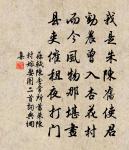 我是朱陳舊使君
勸農曾入杏花村
而今風物那堪畫
縣吏催租夜打門
蘇軾陳季常所蓄朱陳
村嫁娶圖二首詞典網
集